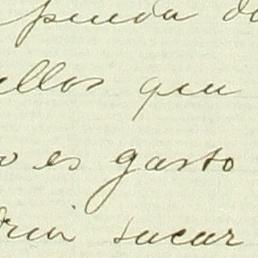 pueda d
ellos que
o es gasto
drin sacar